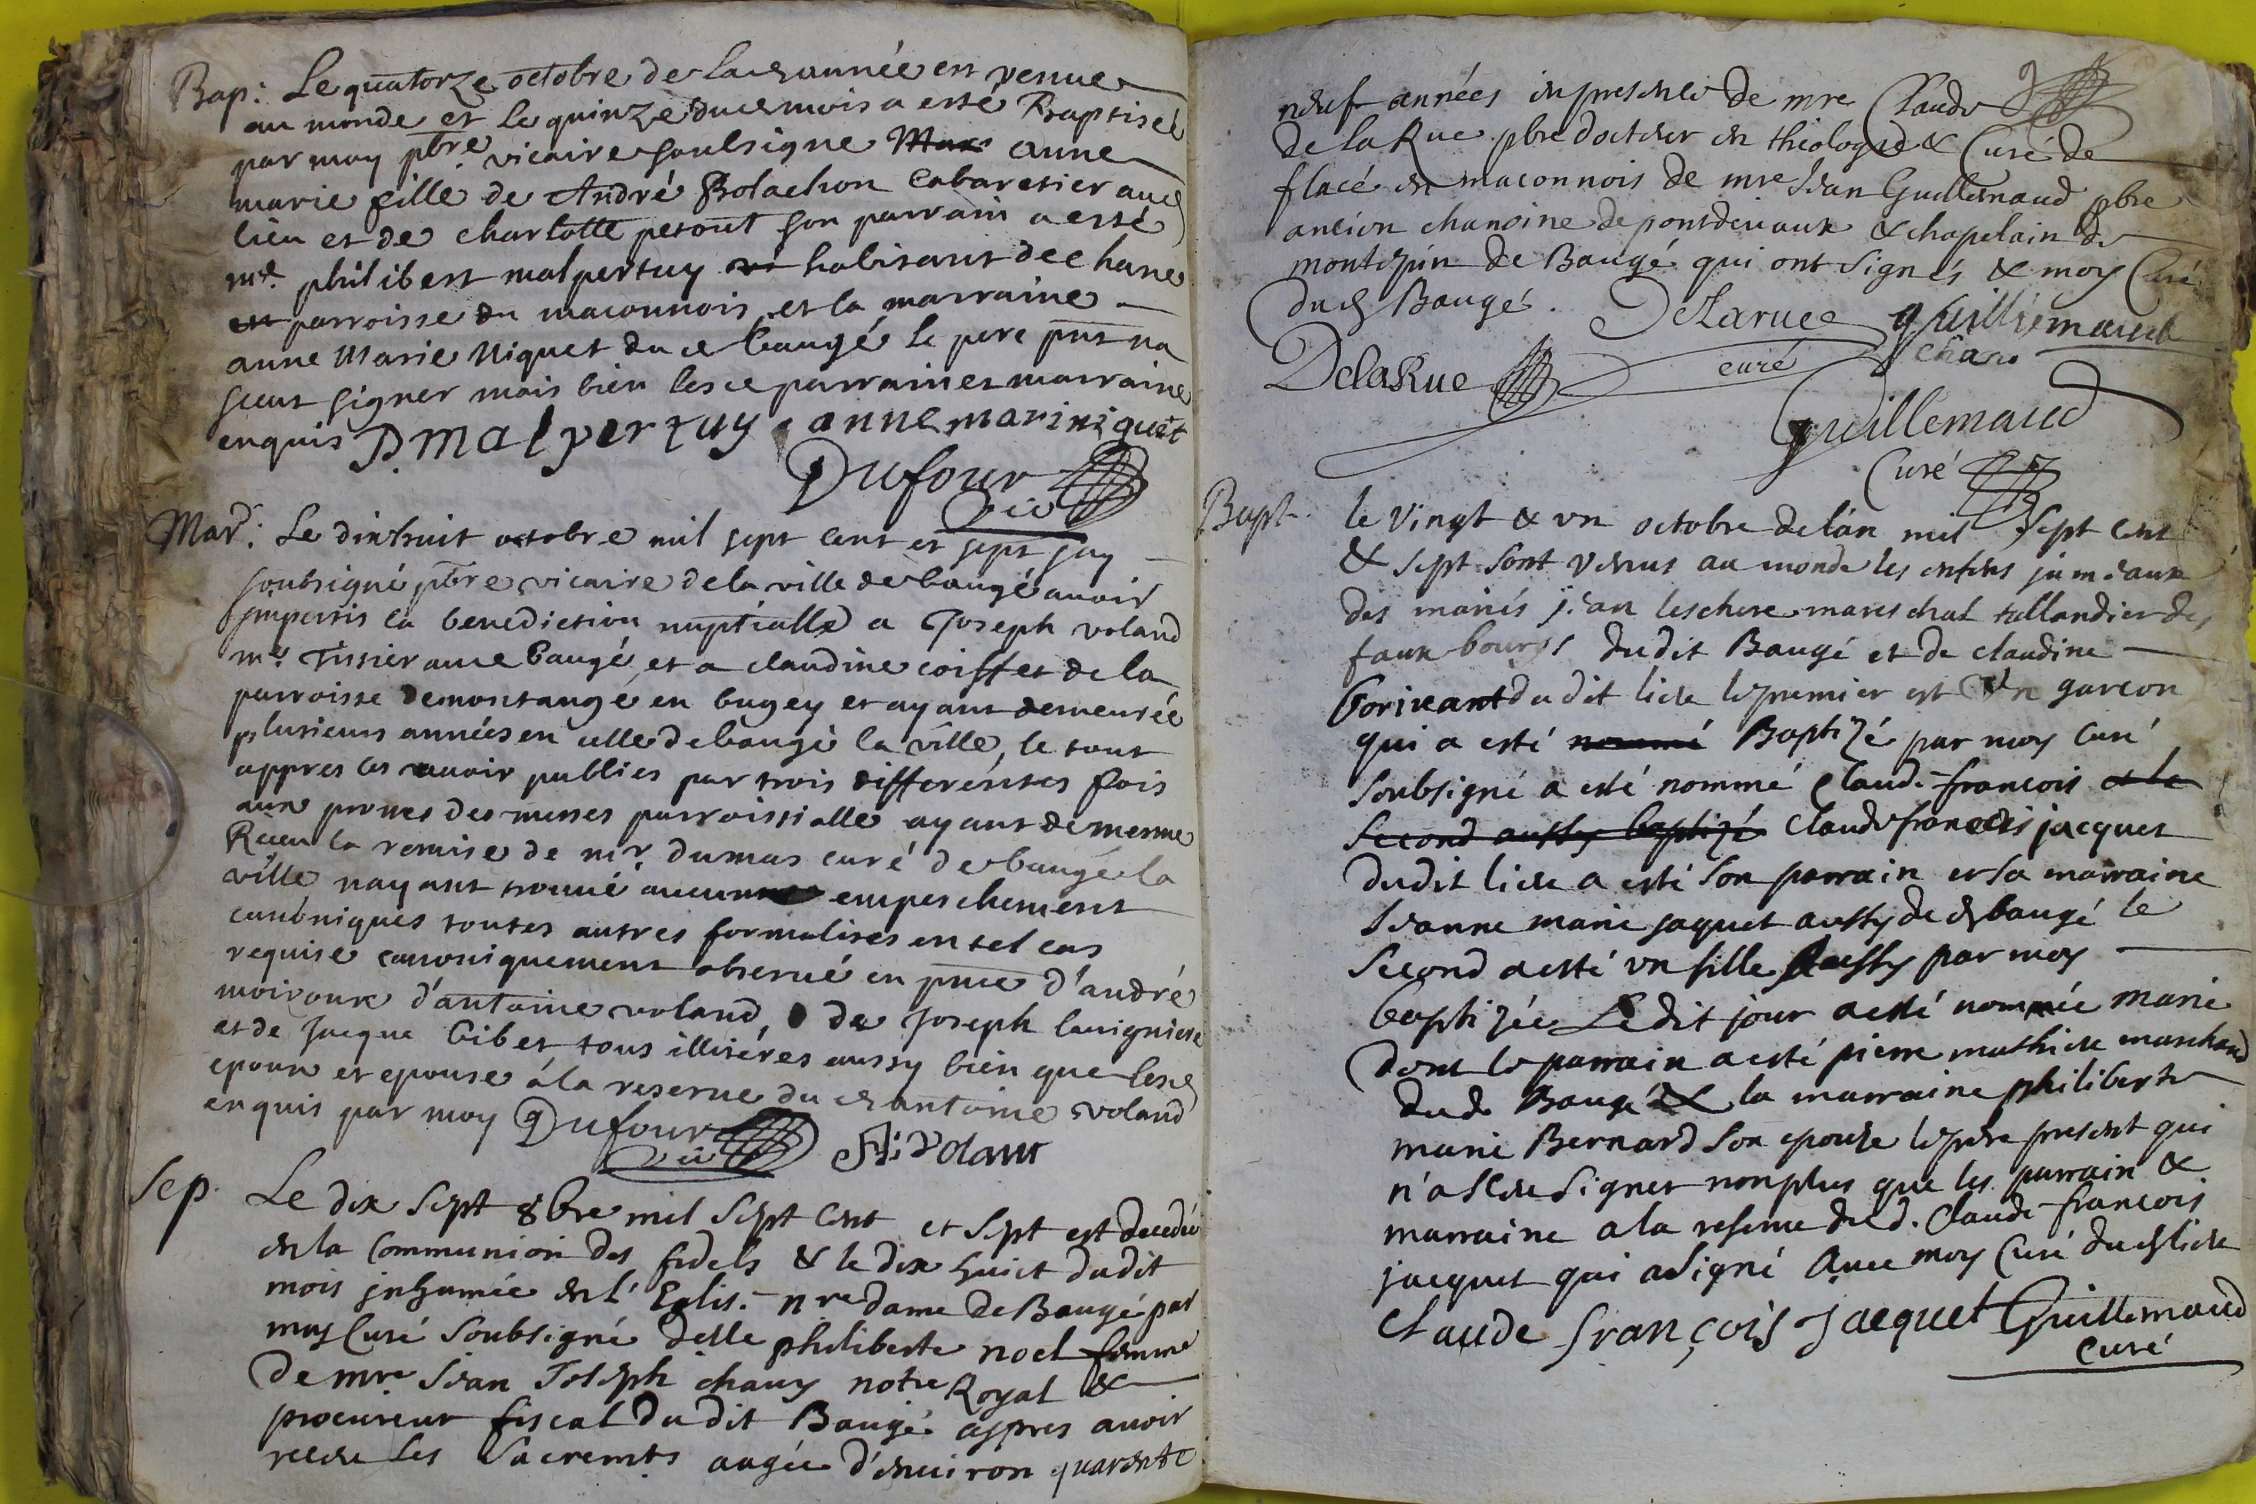 Bap: Le quatorze octobre de lad année est venue
au monde et le quinze dud mois a esté Baptisée
par moy pbre vicaire soubsigne anne
marie fille de André Bolachon Cabaretier aud
lieu et de charlotte petout son parrain a esté
md. philibert malpertuy habitant de chane
parroisse du maconnois et la marraine
anne Marie Niquet du d baugé le pere pnt na
sceut signer mais bien lesd parrain et marraine
enquis P. malpertuy anne marini quet
Dufour
vic
Mar: Le dixhuit octobre mil sept cent et sept jay
soubsigné pbre vicaire de la ville de baugé avoir
impertis la benediction nuptialle a Joseph voland
me Tisier aud baugé, et a claudine coiffet de la
parroisse de montange en bugey et ayant demeurée
plusieurs années en celle de baugé la ville, le tout
appres les avoir publies par trois differentes fois
aux prones des messes parroissialle ayant de mesme
Receu la remise de mr. dumas curé de baugé la
ville nayant trouvé aucun empeschement
canoniques toutes autres formalites en tel cas
requise canoniquement observé en pnce d'andré
moiroux d'antoine voland, de Joseph lavigniere
et de Jacque Gibet tous illitéres aussy bien que lesd
epoux et epouse à la reserve du d antoine voland
enquis par moy Dufour A: Volant
vic
Sep. Le dix sept 8bre mil sept cent et sept est decedée
en la Communion des fidels & le dix huict dudit
mois inhumée en l'Eglis. nre dame de Baugé par
moy Curé soubsigné delle philiberte noel femme
de mre Jean Joseph chauy notre Royal &
procureur fiscal dudit Baugé appres avoir
receu les Sacremts aagée d'environ quarente
neuf années en presence de mre Claude
de la Rue pbre docteur en theologie & Curé de
flacé en maconnois de mre Jean Guillemaud pbre
ancien chanoine de pontdevaux & chapelain de
montepin de Baugé qui ont signés & moy Curé
dud Baugé. Delarue guillemaud
DelaRue curé chan
Guillemaud
Curé
Bapt. le vingt & un octobre de l'an mil sept cent
& sept sont venus au monde les enfens jumeaux
des mariés jean leschere mareschal tallandier des
faux bourgs dudit Baugé et de claudine
Gorreant dudit lieu le premier est Vn garcon
qui a esté nommé Baptizé par moy Curé
soubsigné a esté nommé Claude françois et le
second aussy baptizé Claude françois jacquet
dudit lieu a esté son parrain et sa marraine
Jeanne marie jaquet aussy de d baugé le
second a esté vn fille aussy par moy
baptizée Le dit jour a esté nommée marie
dont le parrain a esté pierre mathieu marchand
dud. Baugé & la marraine philiberte
marie Bernard son epouse le pere present qui
n'a sceu signer nonplus que les parrain &
marraine a la reserve dud. Claude françois
jacquet qui a signé avec moy Curé dud lieu
Claude françois Jacquet Guillemaud
curé